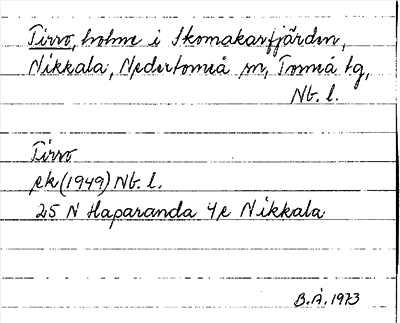 Tirro, holme i Skomakarfjärden,
Nikkala, Nedertorneå sn, Torneå tg,
Nb. l.
Tirro
ek (1949) Nb. l.
25 N Haparanda 4e Nikkala
B.Å. 1973